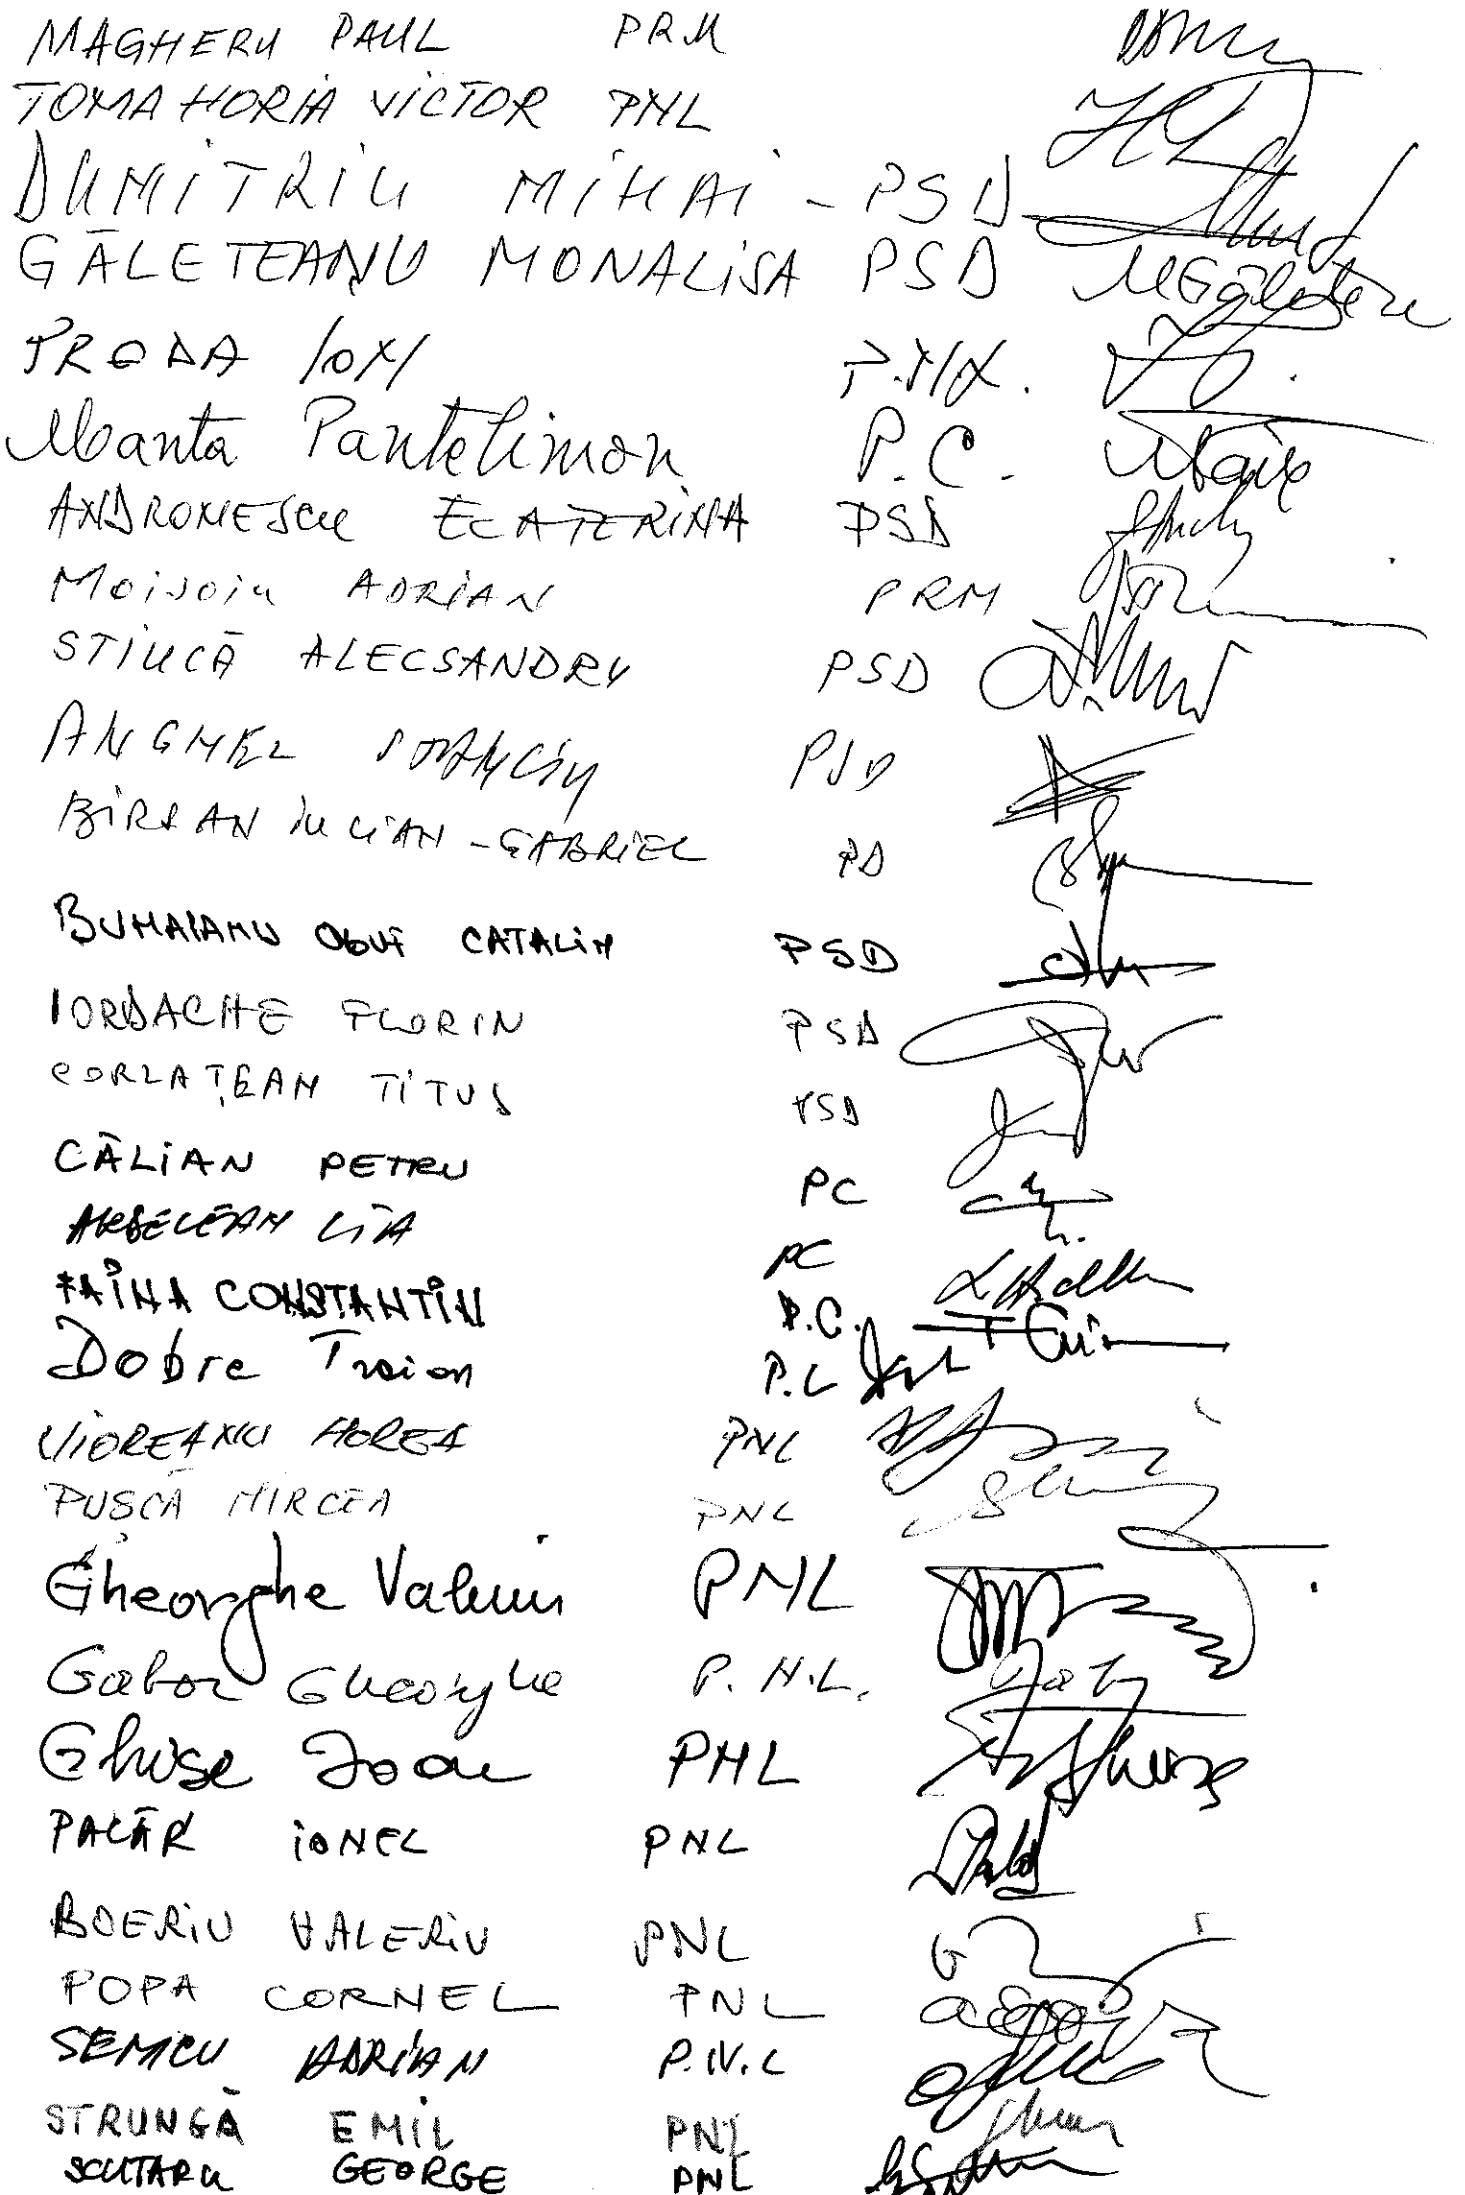 MAGHERU PAUL PRM
TOMA HORIA VICTOR PNL
DUMITRIU MIHAI - PSD
GĂLETEANU MONALISA PSD
PRODA
Manta Pantelimon P.C.
ANDRONESCU ECATERINA PSD
MOISOIU ADRIAN PRM
STIUCĂ ALECSANDRU PSD
ANGHEL PSD
BÎRSAN IULIAN-GABRIEL PD
CATALIN PSD
IORDACHE FLORIN PSD
CORLAȚEAN TITUS PSD
CĂLIAN PETRU PC
ARDELEAN LIA PC
FAINA CONSTANTIN P.C.
Dobre Traian
VIOREANU HOREA PNL
PUȘCĂ MIRCEA PNL
Gheorghe Valeriu PNL
Gabor Gheorghe P.N.L.
Ghise Ioan PNL
PALĂR IONEL PNL
BOERIU VALERIU PNL
POPA CORNEL PNL
SEMCU ADRIAN P.N.L
STRUNGĂ EMIL PNL
SCUTARU GEORGE PNL